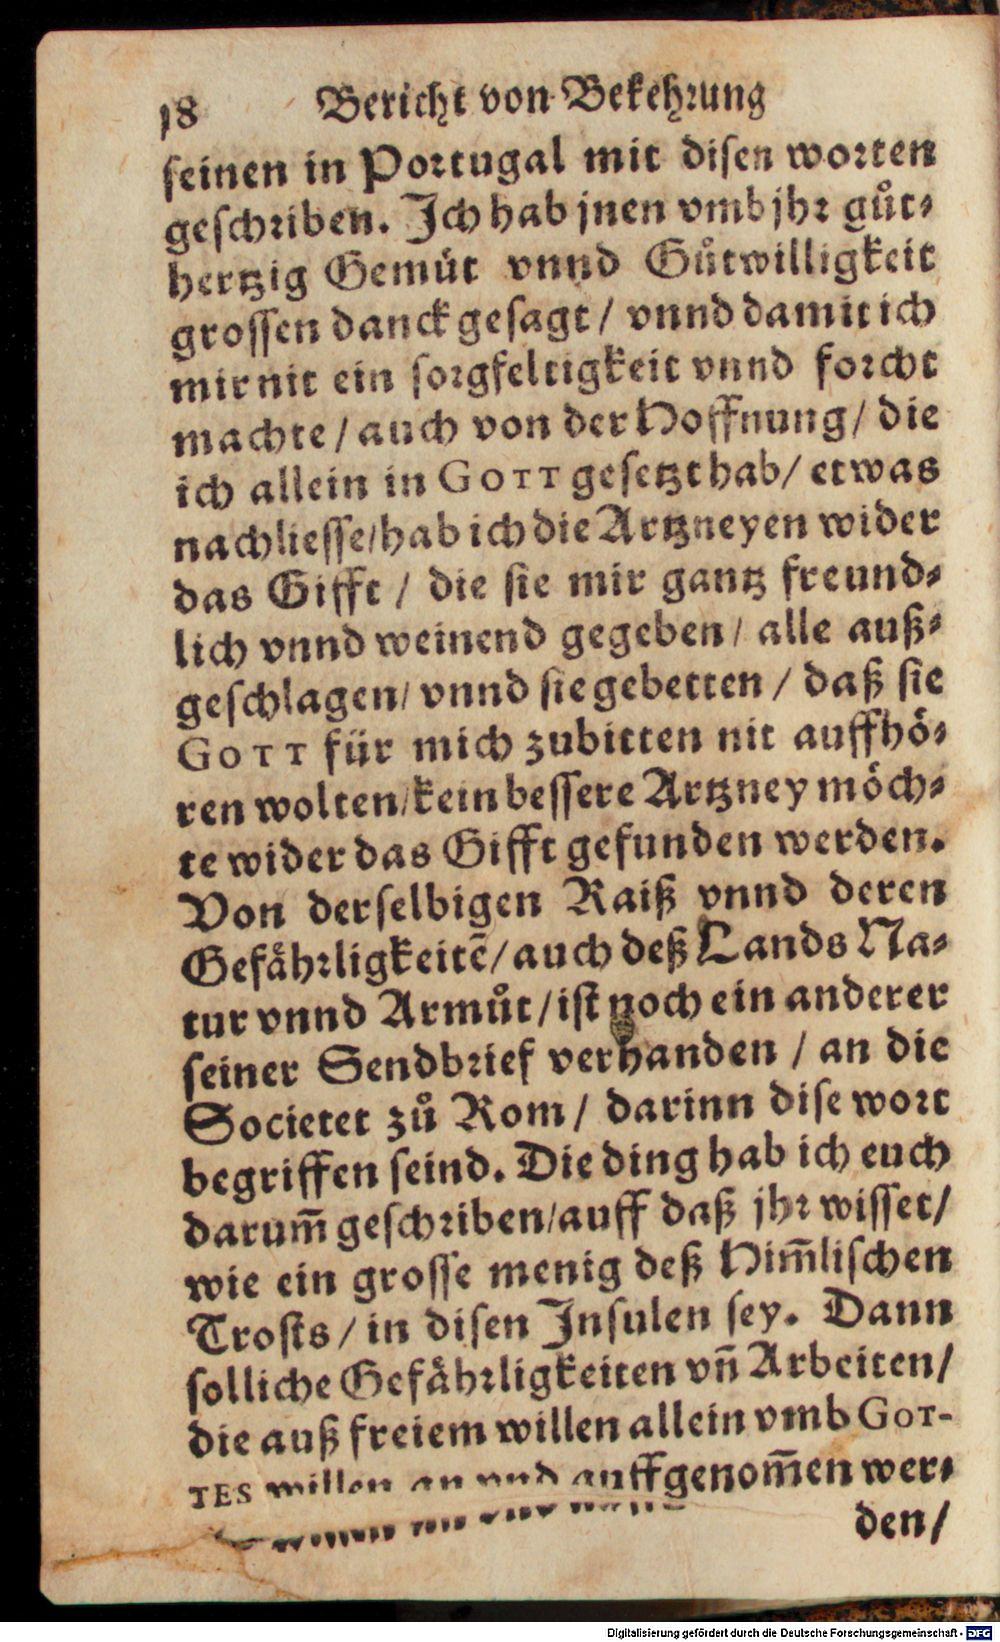 18 Bericht von Bekehrung
seinen in Portugal mit disen worten
geschriben. Ich hab jnen vmb jhr gůt⸗
hertzig Gemüt vnnd Gůtwilligkeit
grossen danck gesagt / vnnd damit ich
mir nit ein sorgfeltigkeit vnnd forcht
machte / auch von der Hoffnung / die
ich allein in GOTT gesetzt hab / etwas
nachliesse / hab ich die Artzneyen wider
das Gifft / die sie mir gantz freund⸗
lich vnnd weinend gegeben / alle auß⸗
geschlagen / vnnd sie gebetten / daß sie
GOTT für mich zubitten nit auffhö⸗
ren wolten / kein bessere Artzney möch⸗
te wider das Gifft gefunden werden.
Von derselbigen Raiß vnnd deren
Gefährligkeitē / auch deß Lands Na⸗
tur vnnd Armůt / ist noch ein anderer
seiner Sendbrief verhanden / an die
Societet zů Rom / darinn dise wort
begriffen seind. Die ding hab ich euch
darum̄ geschriben / auff daß jhr wisset /
wie ein grosse menig deß Him̄lischen
Trosts / in disen Insulen sey. Dann
solliche Gefährligkeiten vn̄ Arbeiten /
die auß freiem willen allein vmb GOT-
TES willen an vnd auffgenom̄en wer⸗
den /
Digitalisierung gefördert durch die Deutsche Forschungsgemeinschaft - DFG